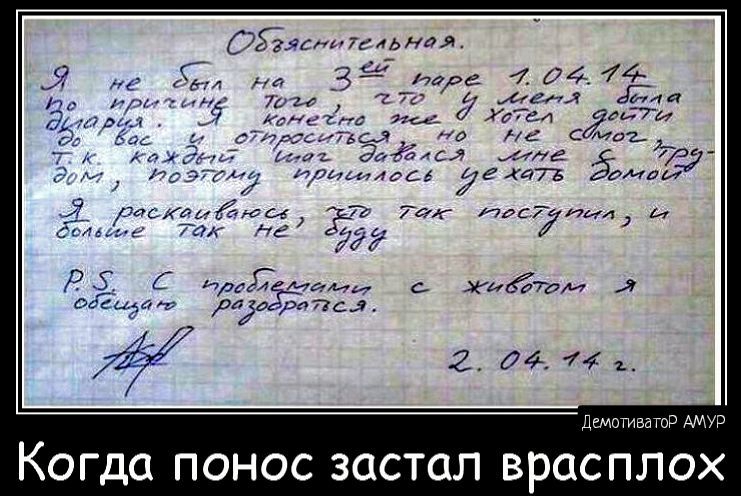 Объяснительная.
Я не был на 3ей паре 1.04.14
по причине того, что у меня была
диария. Я конечно же хотел дойти
до вас и отпроситься, но не смог,
т.к. каждый шаг давался мне с тру-
дом, поэтому пришлось уехать домой
Я раскаиваюсь, что так поступил, и
больше так не буду
P.S. С проблемами с животом я
обещаю разобраться.
2.04.14 г.
ДемотиватоР АМУР
Когда понос застал врасплох